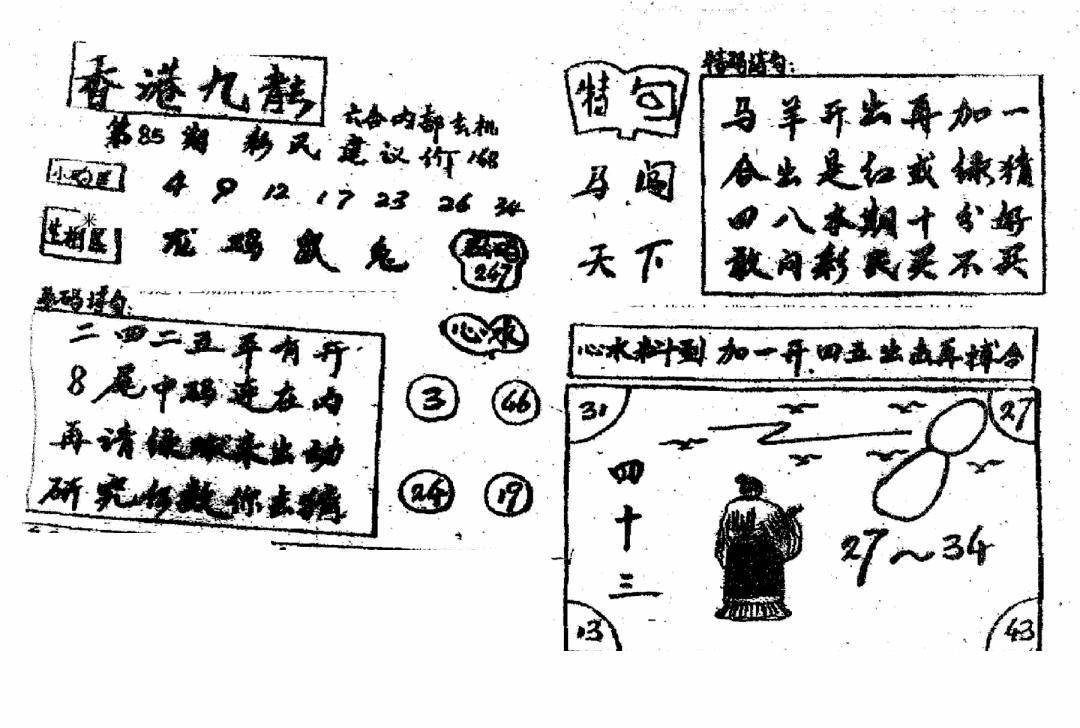 香港九龍
第85期 彩民建议价168
六合内部玄机
小码区 4 9 12 17 23 26 34
生肖区 龙鸡鼠兔
267
心水
3 66
24 19
二四二五平有开
8尾中码连在内
再请绿来出动
研究何数你去猜
特句
马闯
天下
特码诗句:
马羊开出再加一
合出是红或绿猜
四八本期十分好
敢问彩民买不买
心水料到 加一开四五出击再搏合
31 27
四十三
27~34
13 43